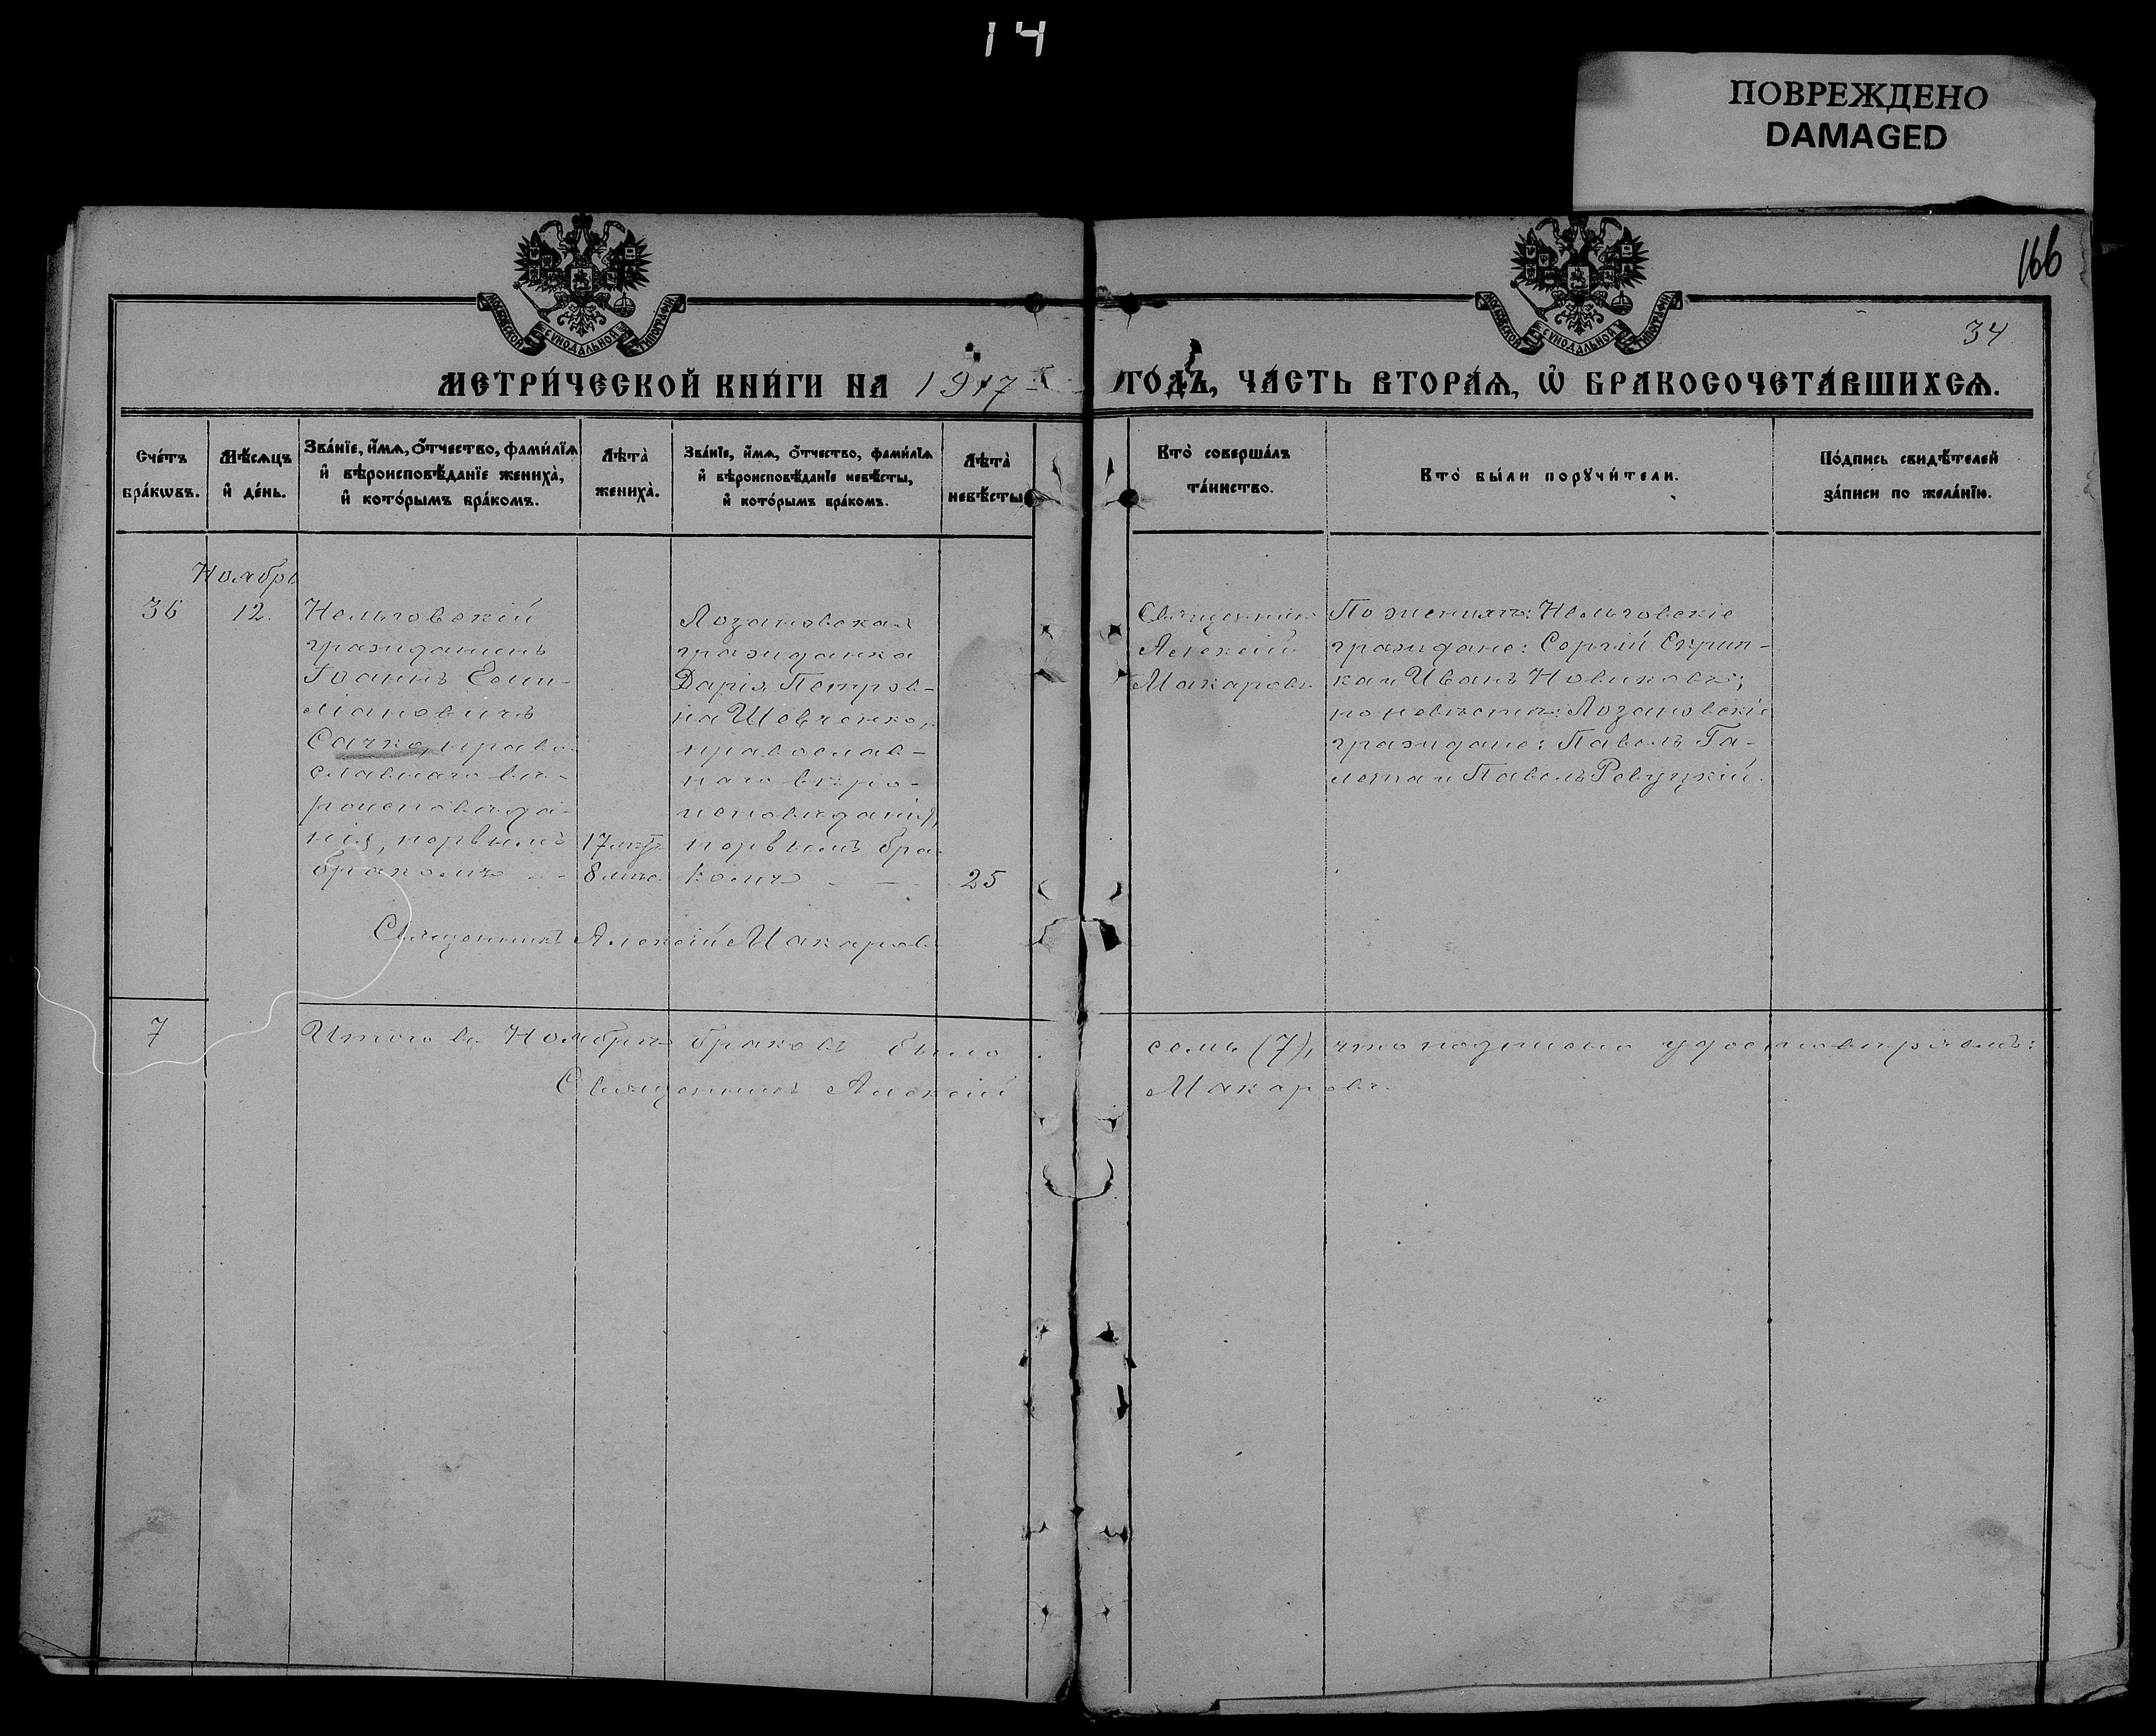 14
ПОВРЕЖДЕНО
DAMAGED
166
34
МОСКОВСКОЙ СѴНОДАЛЬНОЙ ТИПОГРАФІИ
МОСКОВСКОЙ СѴНОДАЛЬНОЙ ТИПОГРАФІИ
МЕТРИ́ЧЕСКОЙ КНИ́ГИ НА 1917 ГОДЪ, ЧА́СТЬ ВТОРА́Ѧ, Ѡ҆ БРАКОСОЧЕТА́ВШИХСѦ.
Сче́тъ бра́кѡвъ.
Мѣ́сѧцъ и҆ де́нь.
Зва́нїе, и҆́мѧ, о҆́тчество, фами́лїѧ и҆ вѣроисповѣ́данїе жениха̀, и҆ кото́рымъ бра́комъ.
Лѣта̀ жениха̀.
Зва́нїе, и҆́мѧ, о҆́тчество, фами́лїѧ и҆ вѣроисповѣ́данїе невѣ́сты, и҆ кото́рымъ бра́комъ.
Лѣта̀ невѣ́сты
Кто̀ соверша́лъ та́инство.
Кто̀ бы́ли порꙋчи́тели.
По́дпись свидѣ́телей за́писи по жела́нїю.
Ноябрь
36
12.
гражданинъ
Іоаннъ Еми-
ліановичъ
Сачко, право-
славнаго вѣ-
роисповѣда-
нія, первымъ
бракомъ
17 лѣтъ
8 мѣс.
Лозановская
гражданка
Дарія Петров-
на Шевченко,
православ-
наго вѣро-
исповѣданія,
первымъ бра-
комъ
25
Священникъ
Алексій
Макаровъ
По женихѣ:
граждане: Сергій Скрип-
ка и Иванъ Новиковъ;
по невѣстѣ: Лозановскіе
граждане: Павелъ Га-
лета и Павелъ Ревуцкій.
Священникъ Алексій Макаровъ
7
Итого въ Ноябрѣ браковъ было семь (7), что подписью удостовѣряемъ:
Священникъ Алексій Макаровъ